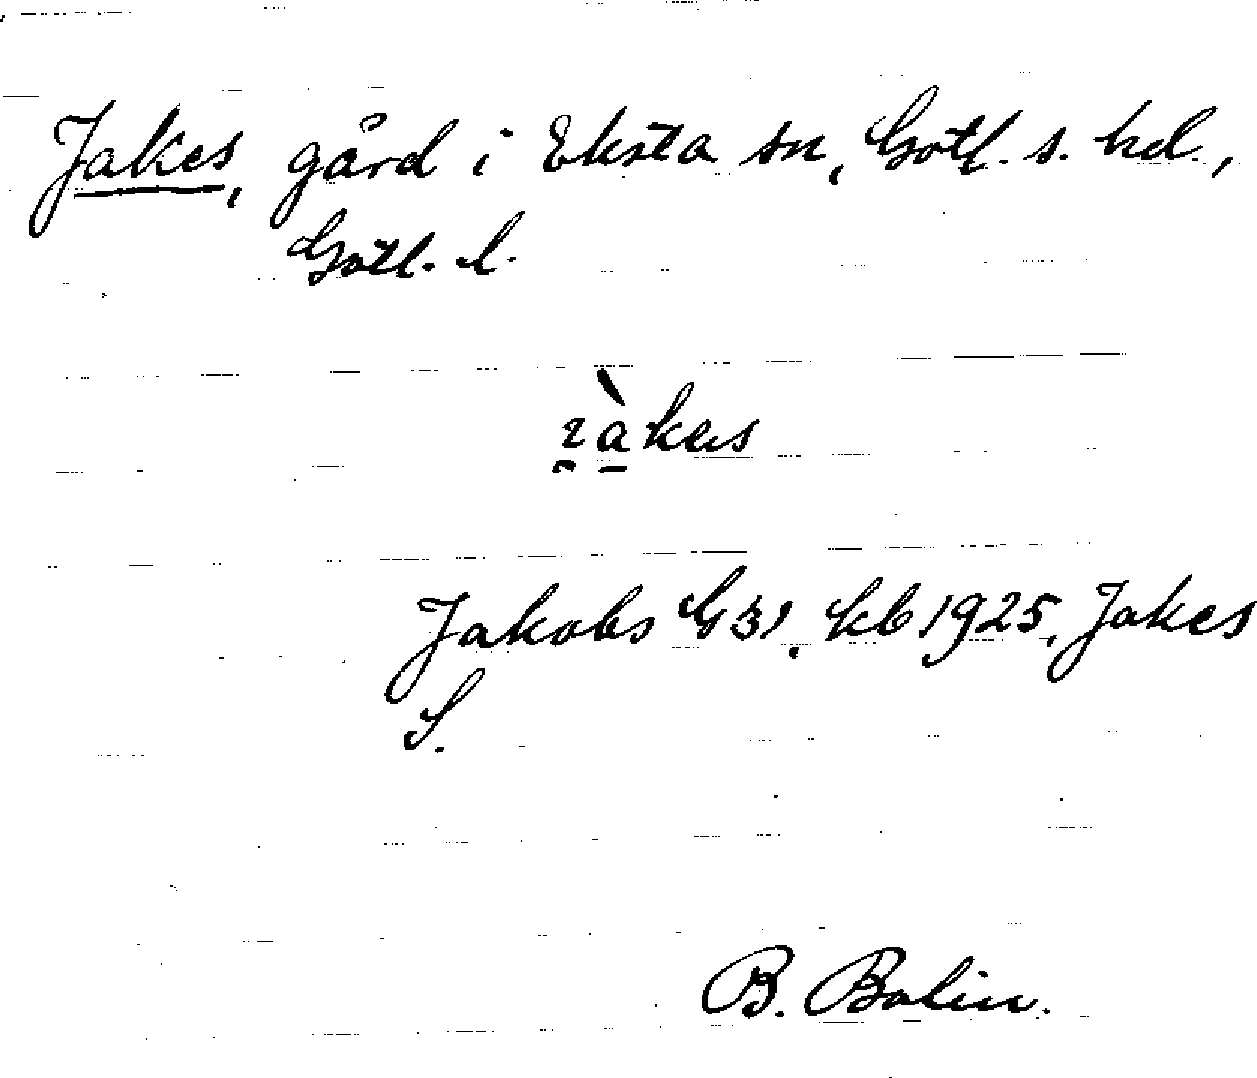 Jakes, gård i Eksta sn, Gotl. s. hd.,
Gotl. l.
kas
Jakobs G31, kb 1925, Jakes
S.
B. Bolin.